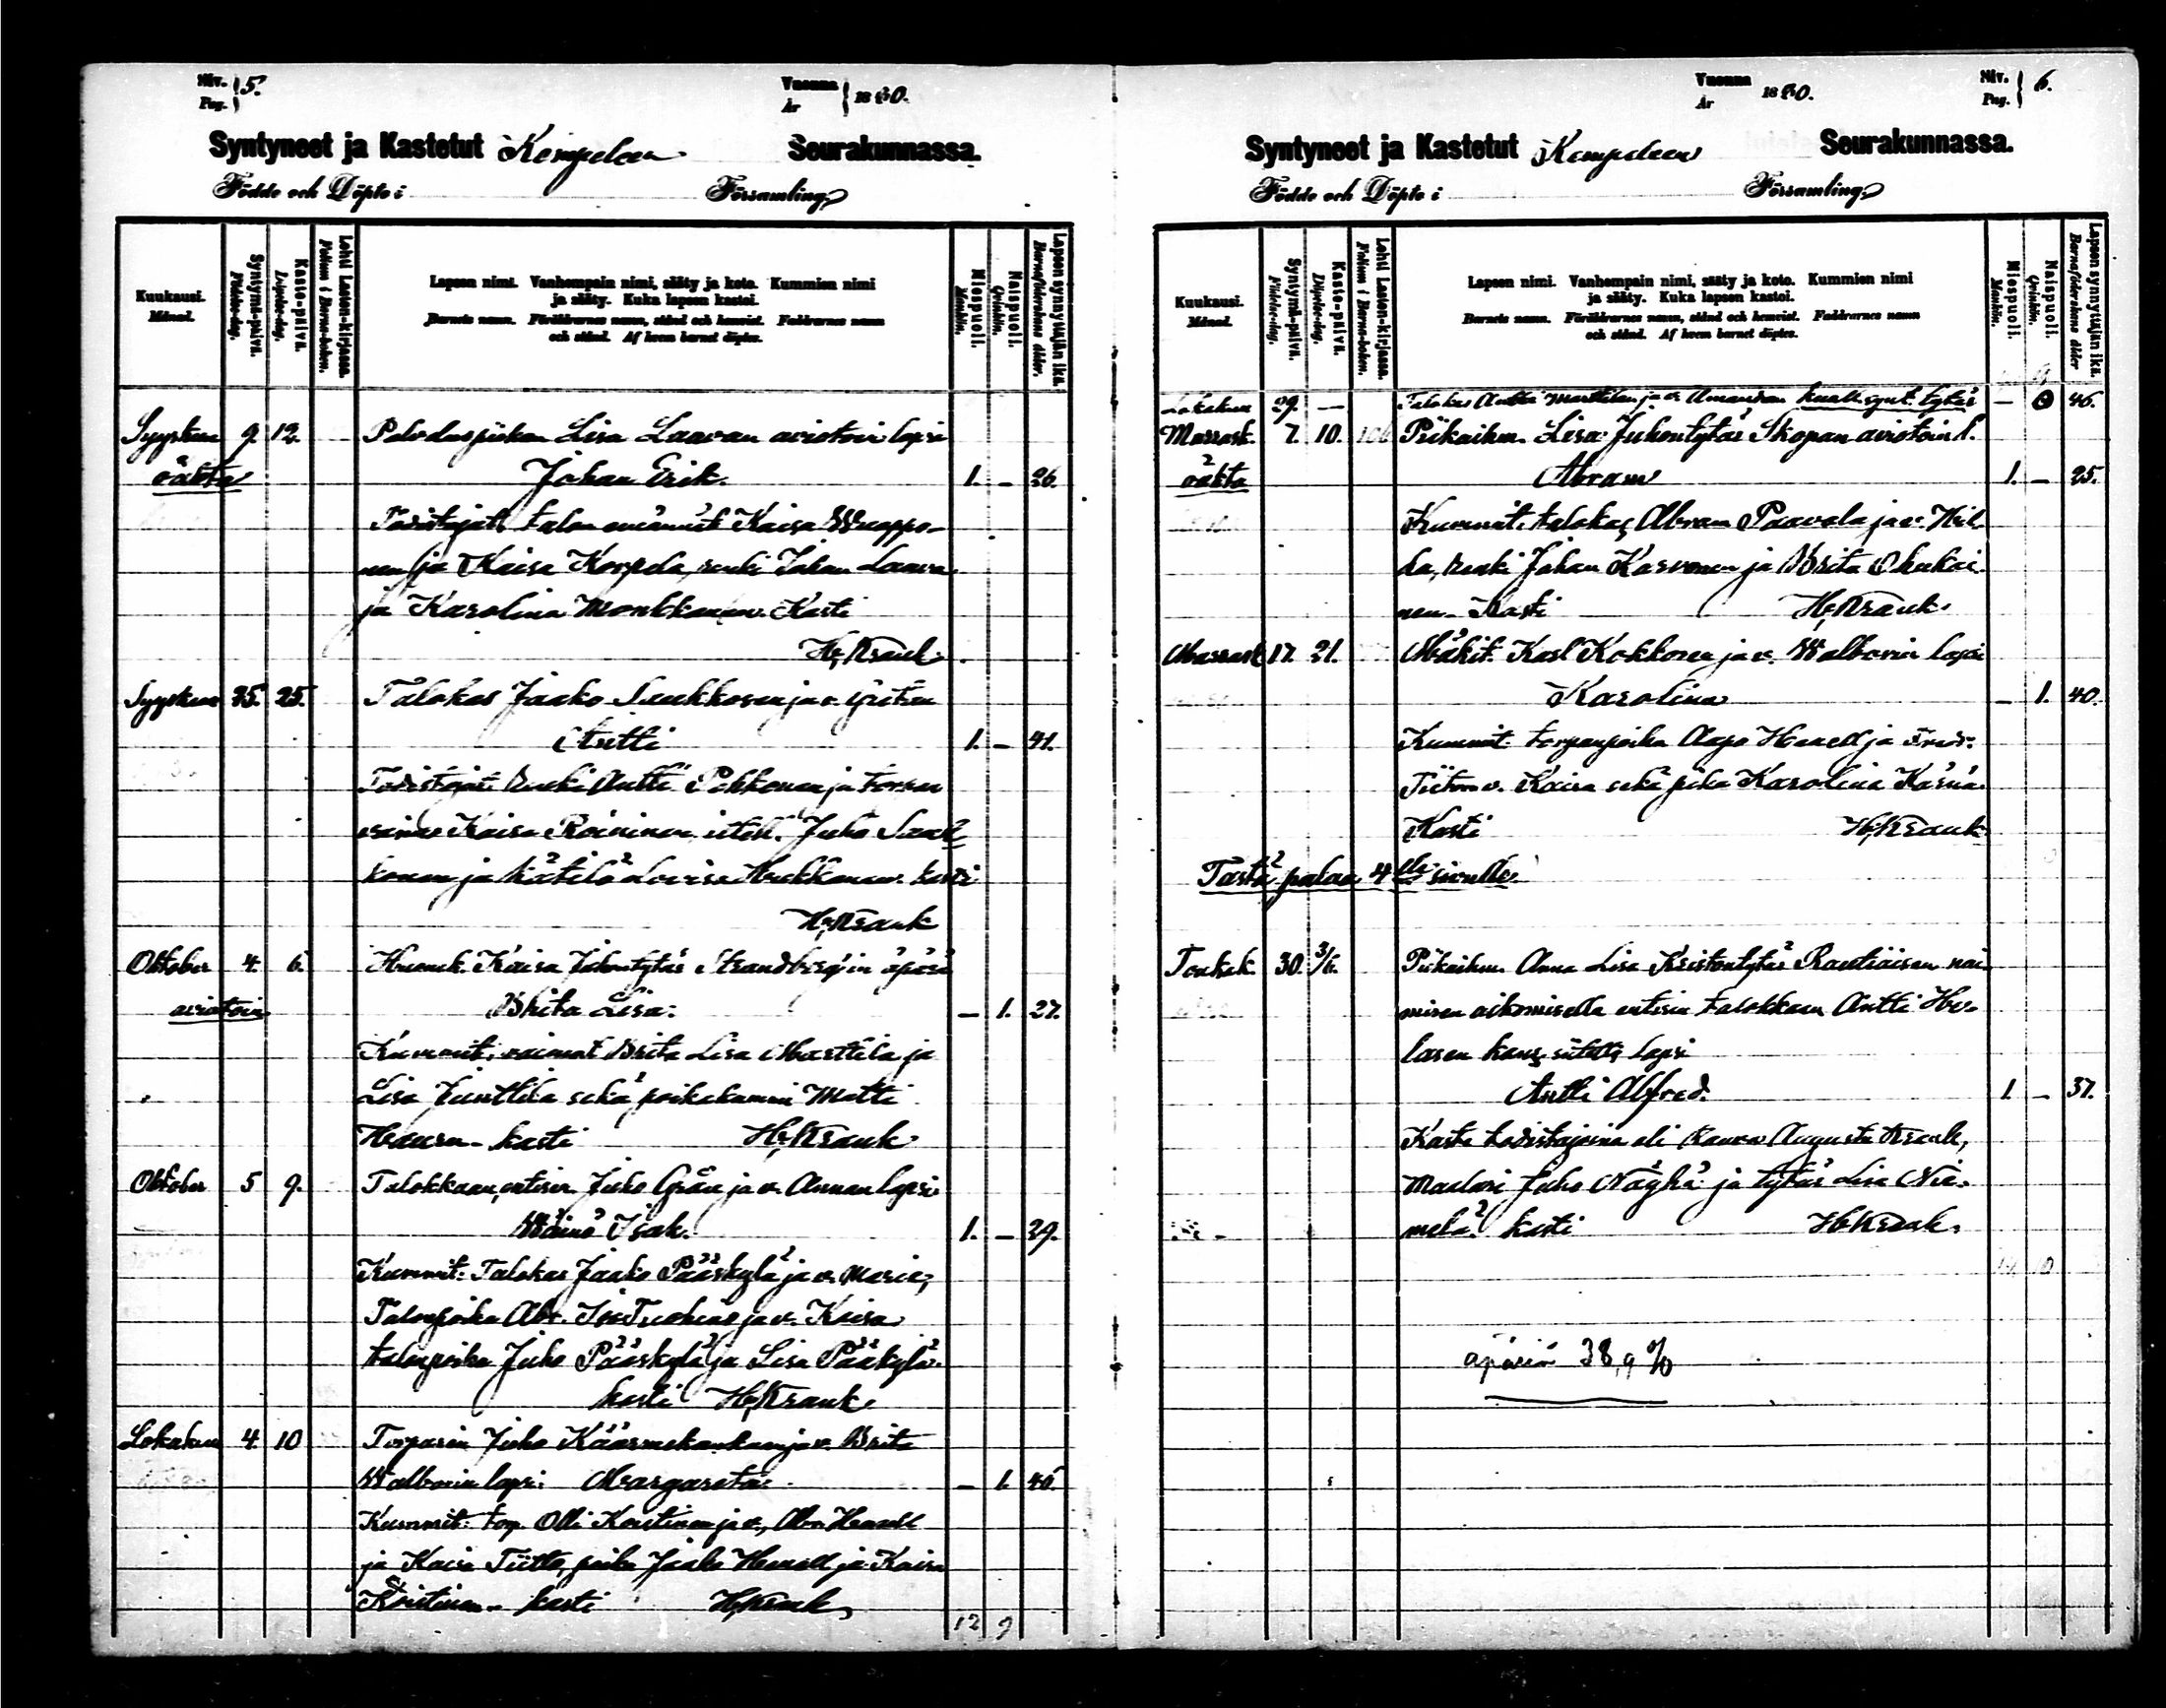 Niv. Pag. } 5.
Vuonna År } 1880.
Syntyneet ja Kastetut Kempeleen Seurakunnassa.
Födde och Döpte i Församling
Kuukausi. Månad.
Syntymä-päivä. Födelse-dag.
Kaste-päivä. Döpelse-dag.
Lehti Lasten-kirjassa. Folium i Barna-boken.
Lapsen nimi. Vanhempain nimi, sääty ja koto. Kummien nimi
ja sääty. Kuka lapsen kastoi.
Barnets namn. Föräldrarnes namn, stånd och hemvist. Faddrarnes namn
och stånd. Af hvem barnet döptes.
Miespuoli. Mankön.
Naispuoli. Qvinkön.
Lapsen synnyttäjän ikä. Barnaföderskans ålder.
Syyskuu 9 12. Palveluspiikan Lisa Laavan aviotoin lapsi
äkta Johan Erik. 1. – 26.
Todistajat: talon emännät Kaisa Wuoppo-
nen ja Kaisa Korpela, renki Johan Laava
ja Karolina Monkkanen. Kasti
H. Krank
Syyskuu 25. 25. Talokas Jaako Leukkosen ja v. Gretan
Antti 1. – 41.
Todistajat: Renki Antti Pokkonen ja torpan
emäntä Kaisa Roininen, itell. Juho
konen ja kätilö Lovisa Heikkonen. kasti
H. Krank
Oktober 4. 6. Huonek. Kaisa Johontytär Strandberg'in äpärä
aviotoin Brita Lisa. – 1. 27.
Kummit: vaimot Brita Lisa Marttila ja
Lisa Junttila sekä poikakummi Matti
Hannu – kasti H. Krank
Oktober 5 9. Talokkaan entisen Juho Grån ja v. Annan lapsi
Wäinö Isak. 1. – 29.
Kummit: Talokas Jaako Pääskylä ja v. Maria,
Talonpoika Abr. IsoTuohino ja v. Kaisa
talonpoika Juho Pääskylä ja Lisa Pääkylä
kasti H. Krank
Lokakuu 4. 10 Torparin Juho Käärmekankan ja v. Brita
Walborin lapsi Margareta – 1. 40.
Kummit: torp. Olli Koistinen ja v., Abr. Henell
ja Kaisa Tiitto, poika Jaako Henell ja Kaisa
Koistinen – kasti H. Krank
12 9
Vuonna År 1880.
Niv. Pag. } 6.
Syntyneet ja Kastetut Kempeleen Seurakunnassa.
Födde och Döpte i Församling
Kuukausi. Månad.
Syntymä-päivä. Födelse-dag.
Kaste-päivä. Döpelse-dag.
Lehti Lasten-kirjassa. Folium i Barna-boken.
Lapsen nimi. Vanhempain nimi, sääty ja koto. Kummien nimi
ja sääty. Kuka lapsen kastoi.
Barnets namn. Föräldrarnes namn, stånd och hemvist. Faddrarnes namn
och stånd. Af hvem barnet döptes.
Miespuoli. Mankön.
Naispuoli. Qvinkön.
Lapsen synnyttäjän ikä. Barnaföderskans ålder
Lokakuu 29. – Talokas Antti Marttilan ja v. Amandan kuoll. synt. tytär – 0 46.
Marrask. 7. 10. 106 Piikaihm. Lisa Juhontytär Skopan aviotoin l.
äkta Abram 1. – 25.
Kummit: talokas Abram Paavola ja v. Hil-
da, Renki Johan Karvonen ja Brita Ohukai-
nen – Kasti H. Krank
Marrask 17. 21. Mäkit. Karl Kokkonen ja v. Walborin lapsi
Karolina – 1. 40.
Kummit: torpanpoika Aapo Henell ja Fredr.
Tiiton v. Kaisa sekä piika Karolina Kärnä
Kasti H. Krank
Tästä palaa 4lle sivulle.
Toukok. 30. 3/6. Piikaihm. Anna Lisa Kristontytär Rautiaisen nai-
misen aikomisella entisen talokkaan Antti Huo-
lasen kans siitetty lapsi
Antti Alfred. 1. – 37.
Kaste todistajoina oli Rouva Augusta Krank,
Maalari Juho Näyhä ja tytär Lisa Nie-
melä. kasti H. Krank.
10
äpäriä 38,9 %